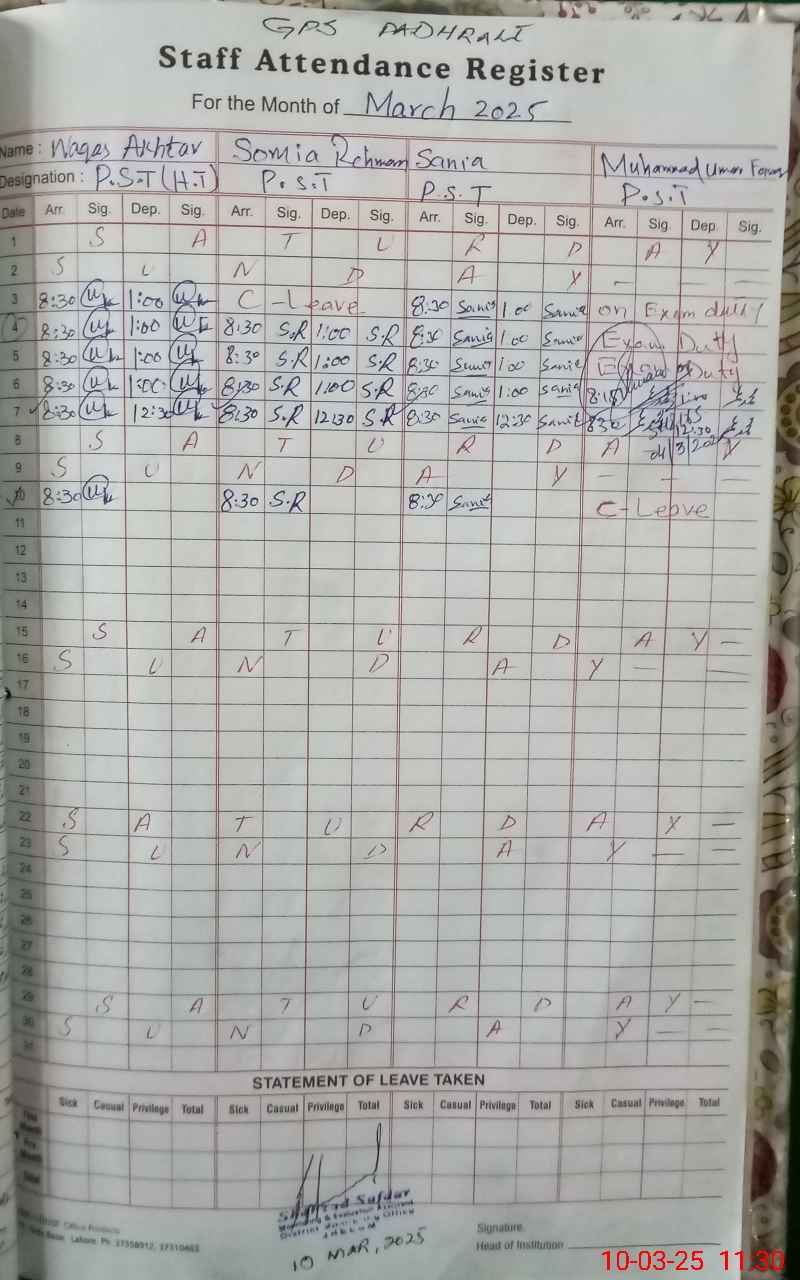 GPS PADHRALI
Staff Attendance Register
For the Month of March 2025
Name : Waqas Akhtar Somia Rehman Sania Muhammad Umar
Designation : P.S.T (H.T) P.S.T P.S.T P.S.T
Date Arr. Sig. Dep. Sig. Arr. Sig. Dep. Sig. Arr. Sig. Dep. Sig. Arr. Sig. Dep Sig.
1 S A T U R D A Y
2 S U N D A Y — — —
3 8:30 1:00 C - Leave 8:30 Sania 1:00 Sania on Exam duty
4 8:30 1:00 8:30 S.R 1:00 S.R 8:30 Sania 1:00 Sania Exam Duty
5 8:30 1:00 8:30 S.R 1:00 S.R 8:30 Sania 1:00 Sania Duty
6 8:30 1:00 8:30 S.R 1:00 S.R 8:30 Sania 1:00 Sania 8:15 1:00
7 8:30 12:30 8:30 S.R 12:30 S.R 8:30 Sania 12:30 Sania 8:30 12:30
8 S A T U R D A Y
9 S U N D A Y — — —
10 8:30 8:30 S.R 8:30 Sania C-Leave
11
12
13
14
15 S A T U R D A Y —
16 S U N D A Y — —
17
18
19
20
21
22 S A T U R D A Y —
23 S U N D A Y — —
24
25
26
27
28
29 S A T U R D A Y —
30 S U N D A Y — —
31
STATEMENT OF LEAVE TAKEN
Sick Casual Privilege Total Sick Casual Privilege Total Sick Casual Privilege Total Sick Casual Privilege Total
Month
Month
Total
Safdar
10 MAR, 2025
Office Products
Lahore. Ph: 37358912, 37310463
Signature
Head of Institution
10-03-25 11:30